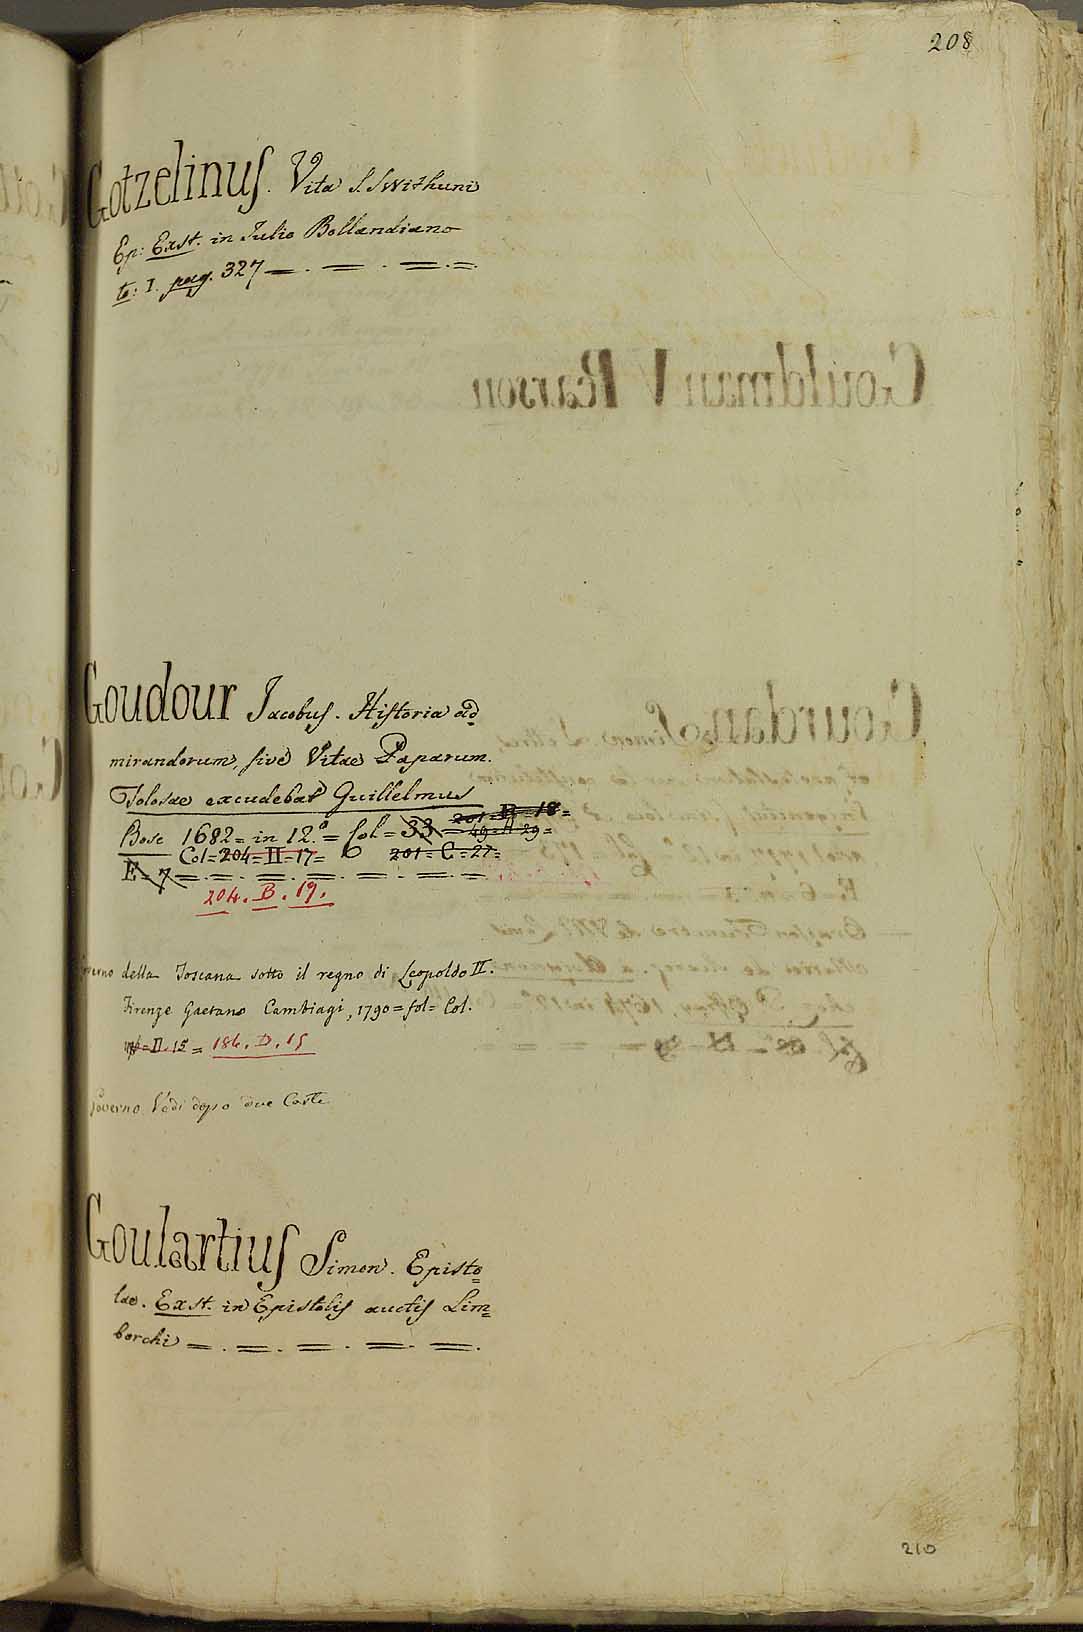 208
Gotzelinus. Vita S. Swithuni
Ep: Exst. in Julio Bollandiano
to: I. pag. 327 = . = . = . =
Goudour Jacobus. Historia ad=
mirandorum, sive Vitae Paparum.
Tolosae excudebat Guillelmus
Bosc 1682 = in 12.° = Col = 33 201 = B = 18 =
Col = 204 = II = 17 = 201 = C = 27 = 49 = A = 29 =
E = 7 = . = . = . = . = . =
204. B. 19.
della Toscana sotto il regno di Leopoldo II.
Firenze Gaetano Cambiagi, 1790 = fol = Col.
= II. 15 = 186. D. 15
Governo. Vedi dopo due Carte
Goulartius Simon. Episto=
lae. Exst. in Epistolis auctis Lim=
borchi = . = . = . = . = .
210